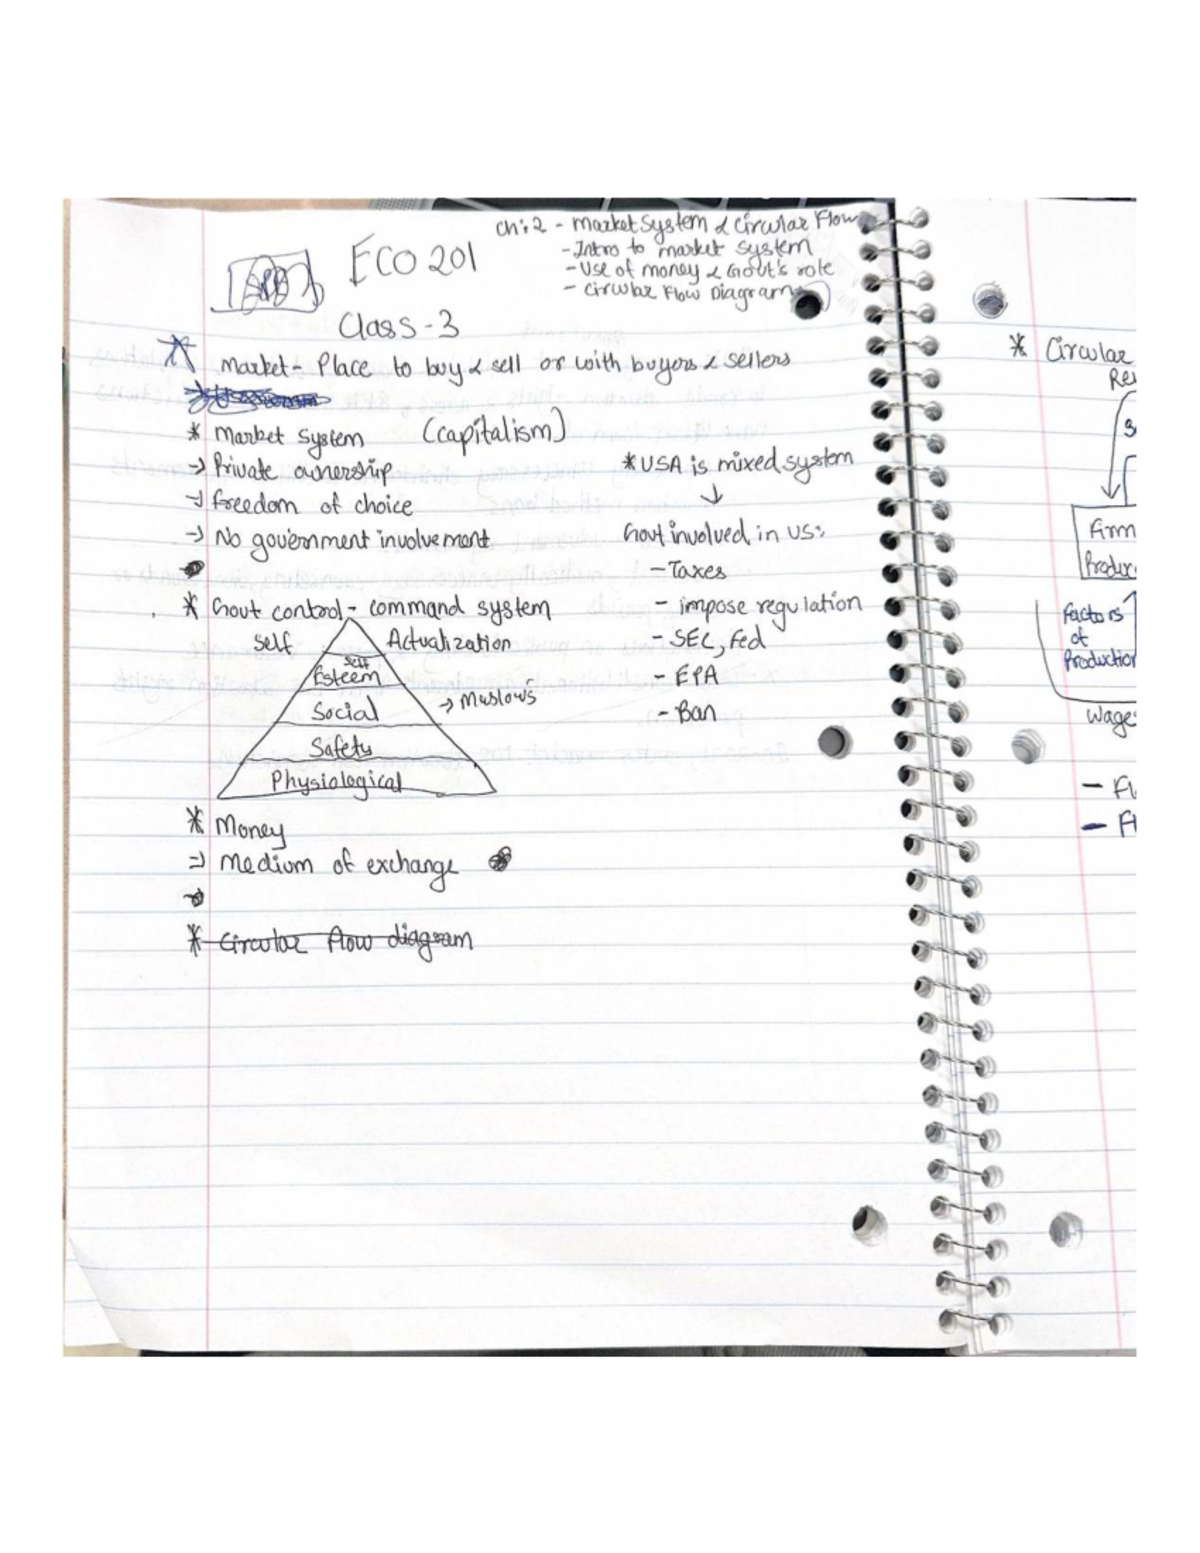 Ch:2 - Market System & Circular Flow
- Intro to market system
- Use of money & Govt's role
- Circular Flow Diagram
ECO 201
Class-3
Market - Place to buy & sell or with buyers & sellers
* Market System (capitalism)
→ Private ownership
→ Freedom of choice
→ No government involvement
* Govt control - command system
Self Actualization
Self
Esteem
Social
→ Maslow's
Safety
Physiological
* USA is mixed system
↓
Govt involved in US:
- Taxes
- impose regulation
- SEC, Fed
- EPA
- Ban
* Money
→ Medium of exchange
* Circular flow diagram
* Circular
Firm
Factors
of
Production